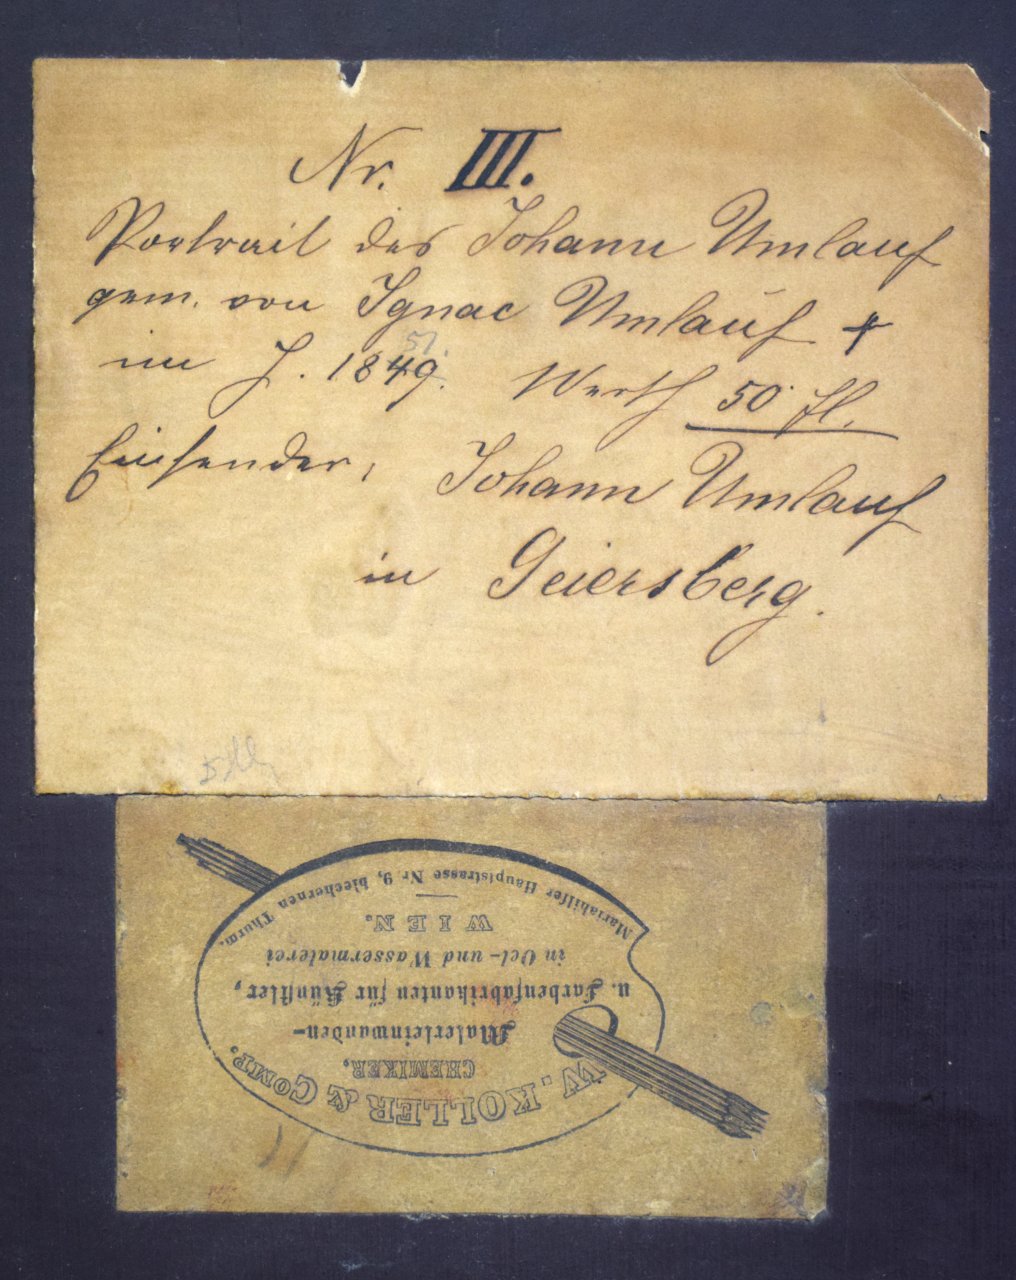 Nr. III.
Portrait des Johann Umlauf
gem. von Ignac Umlauf
51.
im J. 1849. Werth 50 fl.
Einsender, Johann Umlauf
in Geiersberg.
W. KOLLER & COMP.
CHEMIKER,
Malerleinwanden-
u. Farbenfabrikanten für Künstler,
in Oel- und Wassermalerei
WIEN.
Mariahilfer Hauptstrasse Nr 9, blechernen Thurm.